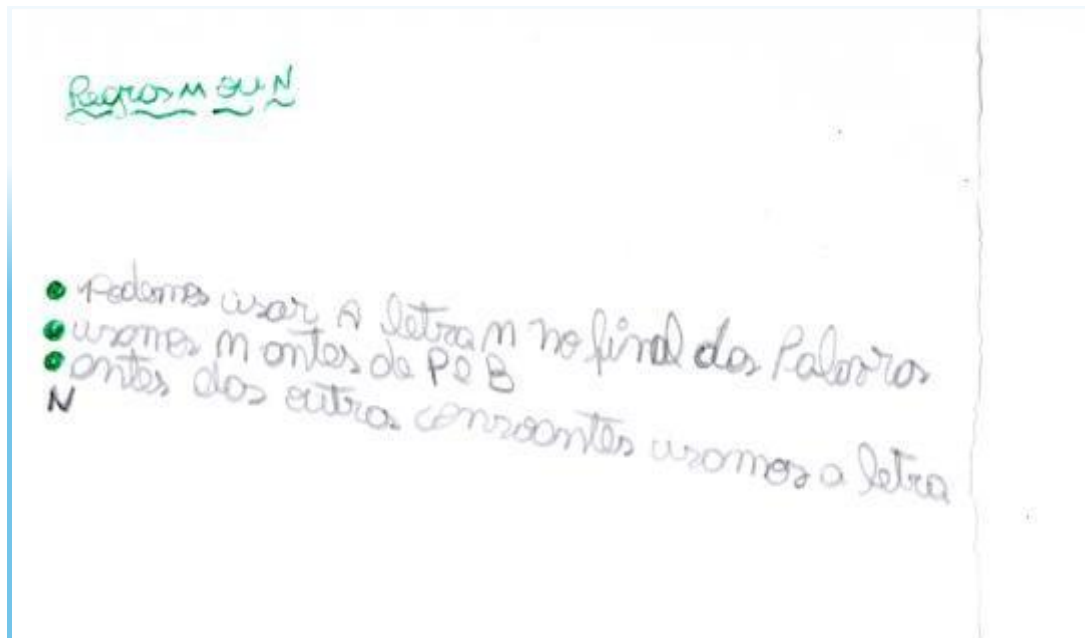 Regras M ou N
Podemos usar A letra M no final das Palavras
usamos M antes de P e B
antes das outras consoantes usamos a letra
N